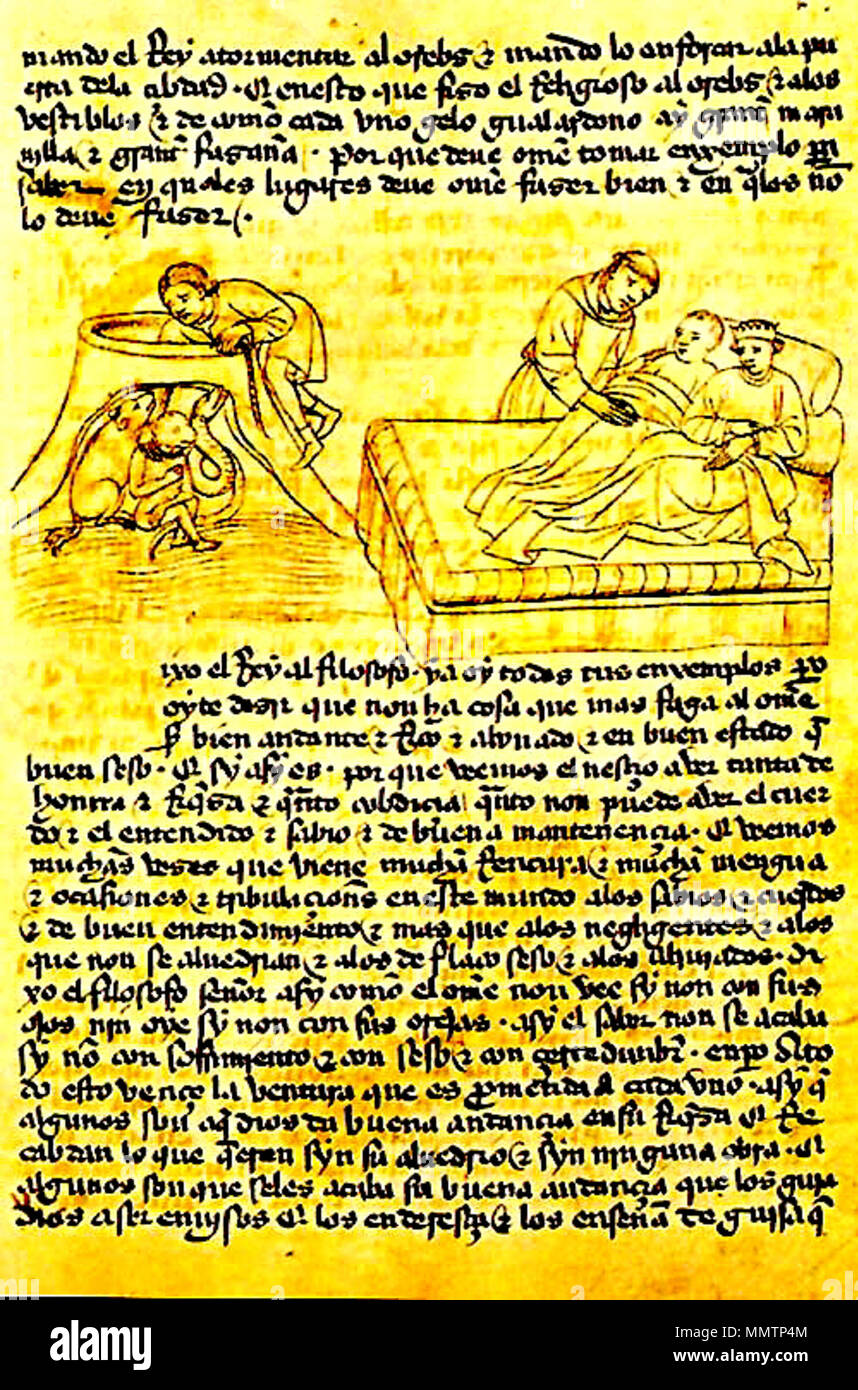 mando el Rey atormentar al orebs & mando lo enforcar ala pu
erta dela cibdad. E enesto que fiso el Religioso al orebs & alos
vestiblos & de como cada vno gelo gualardono ay grant mara
uilla & grant fasaña. por que deue ome tomar enxemplo pa
saber en quales lugares deue ome faser bien & en qles no
lo deue faser.
ixo el Rey al filosofo. ya oy todos tus enxemplos po
oyte desir que non ha cosa que mas faga al ome
bien andante & Rico & abuado & en buen estado q
buen seso. E sy asy es. por que veemos el nesçio aver tanta de
honrra & Riqsa & qnto cobdicia qnto non puede aver el cuer
do & el entendido & sabio & de buena mantenencia. E veemos
muchas veses que viene mucha Rencura & mucha mengua
& ocasiones & tribulaciones eneste mundo alos sabios & cuerdos
& de buen entendimiento & mas que alos negligentes & alos
que non se aluedrian & alos de flaco seso & alos. di
xo el filosofo señor asy como el ome non vee sy non con sus
ojos nin oye sy non con sus orejas. asy el saber non se acaba
sy no con sofrimiento & con seso & con çertedunbr. enpo a to
do esto vençe la ventura que es prometida a cada vno. asy q
algunos son aq dios da buena andancia en su Riqsa E Re
cabdan lo que qeren syn su aluedrio & syn ninguna obra. E
algunos son que seles acaba su buena andança que los guia
dios a ser & los enderesça & los enseña de guisa q
alamy
Image ID: MMTP4M
www.alamy.com